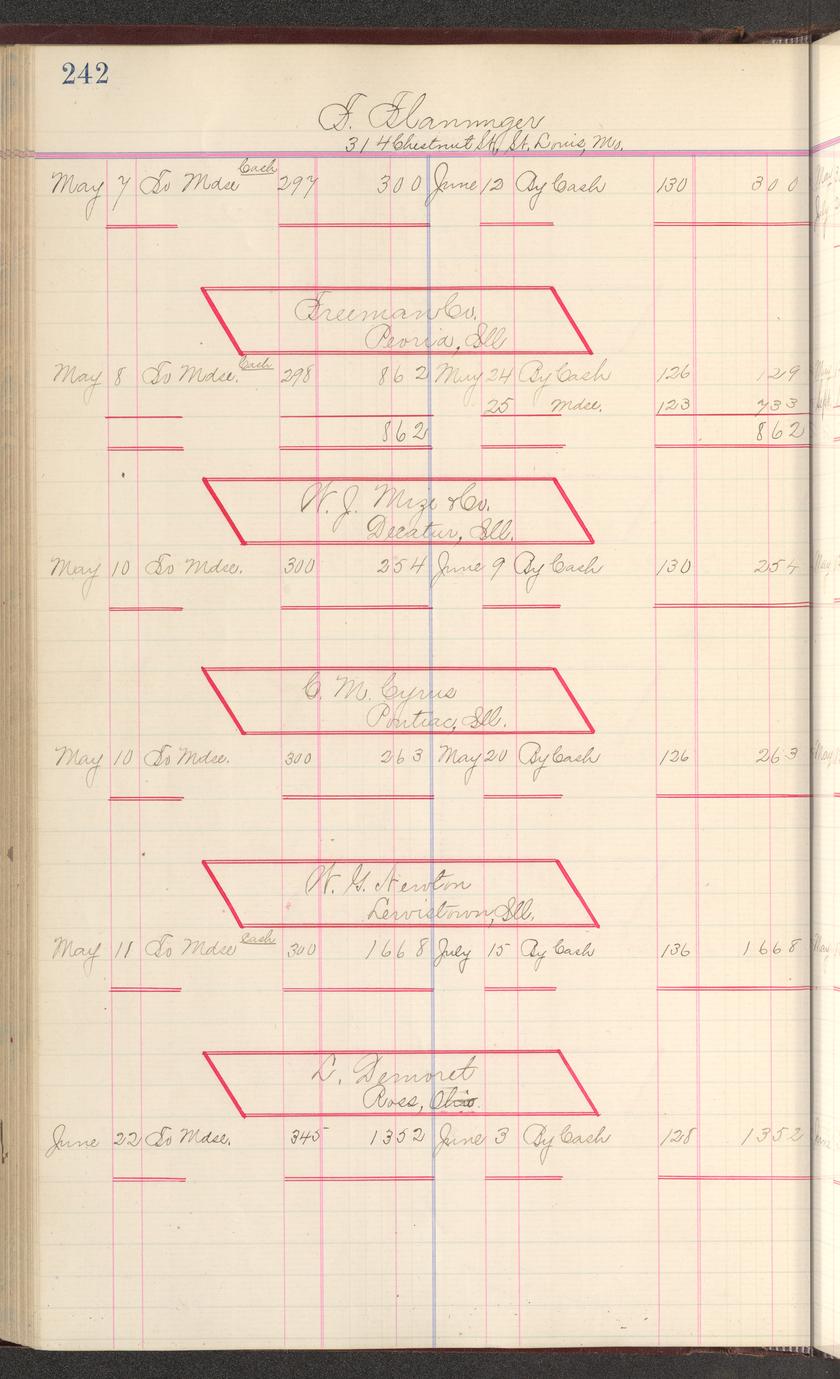 242
F. Flanninger
314 Chestnut St, St. Louis, Mo.
May 7 To Mdse Cash 297 300 June 12 By Cash 130 300
Freeman & Co.
Peoria, Ill
May 8 To Mdse. Cash 298 862 May 24 By Cash 126 129
25 Mdse. 123 733
862 862
W. J. Mize & Co.
Decatur, Ill.
May 10 To Mdse. 300 254 June 9 By Cash 130 254
C. M. Cyrus
Pontiac, Ill.
May 10 To Mdse. 300 263 May 20 By Cash 126 263
W. G. Newton
Lewistown, Ill.
May 11 To Mdse Cash 300 1668 July 15 By Cash 136 1668
L. Demoret
Ross, Ohio.
June 22 To Mdse. 345 1352 June 3 By Cash 128 1352